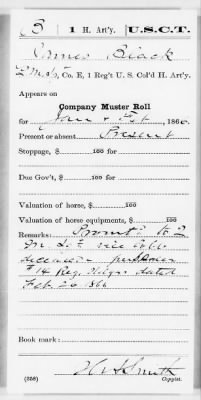 B | 1 H. Art'y. | U.S.C.T.
James Black
Q M S, Co. E, 1 Reg't U. S. Col'd H. Art'y.
Appears on
Company Muster Roll
for Jan & Feb, 1866.
Present or absent Present
Stoppage, $ 100 for
Due Gov't, $ 100 for
Valuation of horse, $ 100
Valuation of horse equipments, $ 100
Remarks: Promt to Q
M. S. vice
deceased per
#14 Reg. Hdqrs dated
Feb 20 1866
Book mark:
Smith
(358) Copyist.